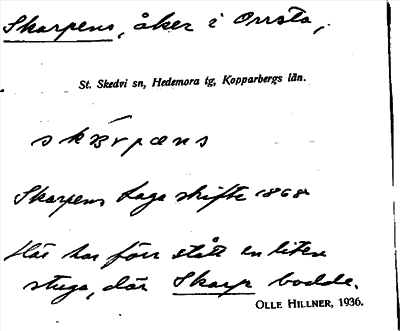 Skarpens, åker i Orrsta,
St. Skedvi sn, Hedemora tg, Kopparbergs län.
skarpens
Skarpens Laga skifte 1868
Här har förr stått en liten
stuga, där Skarp bodde.
OLLE HILLNER, 1936.